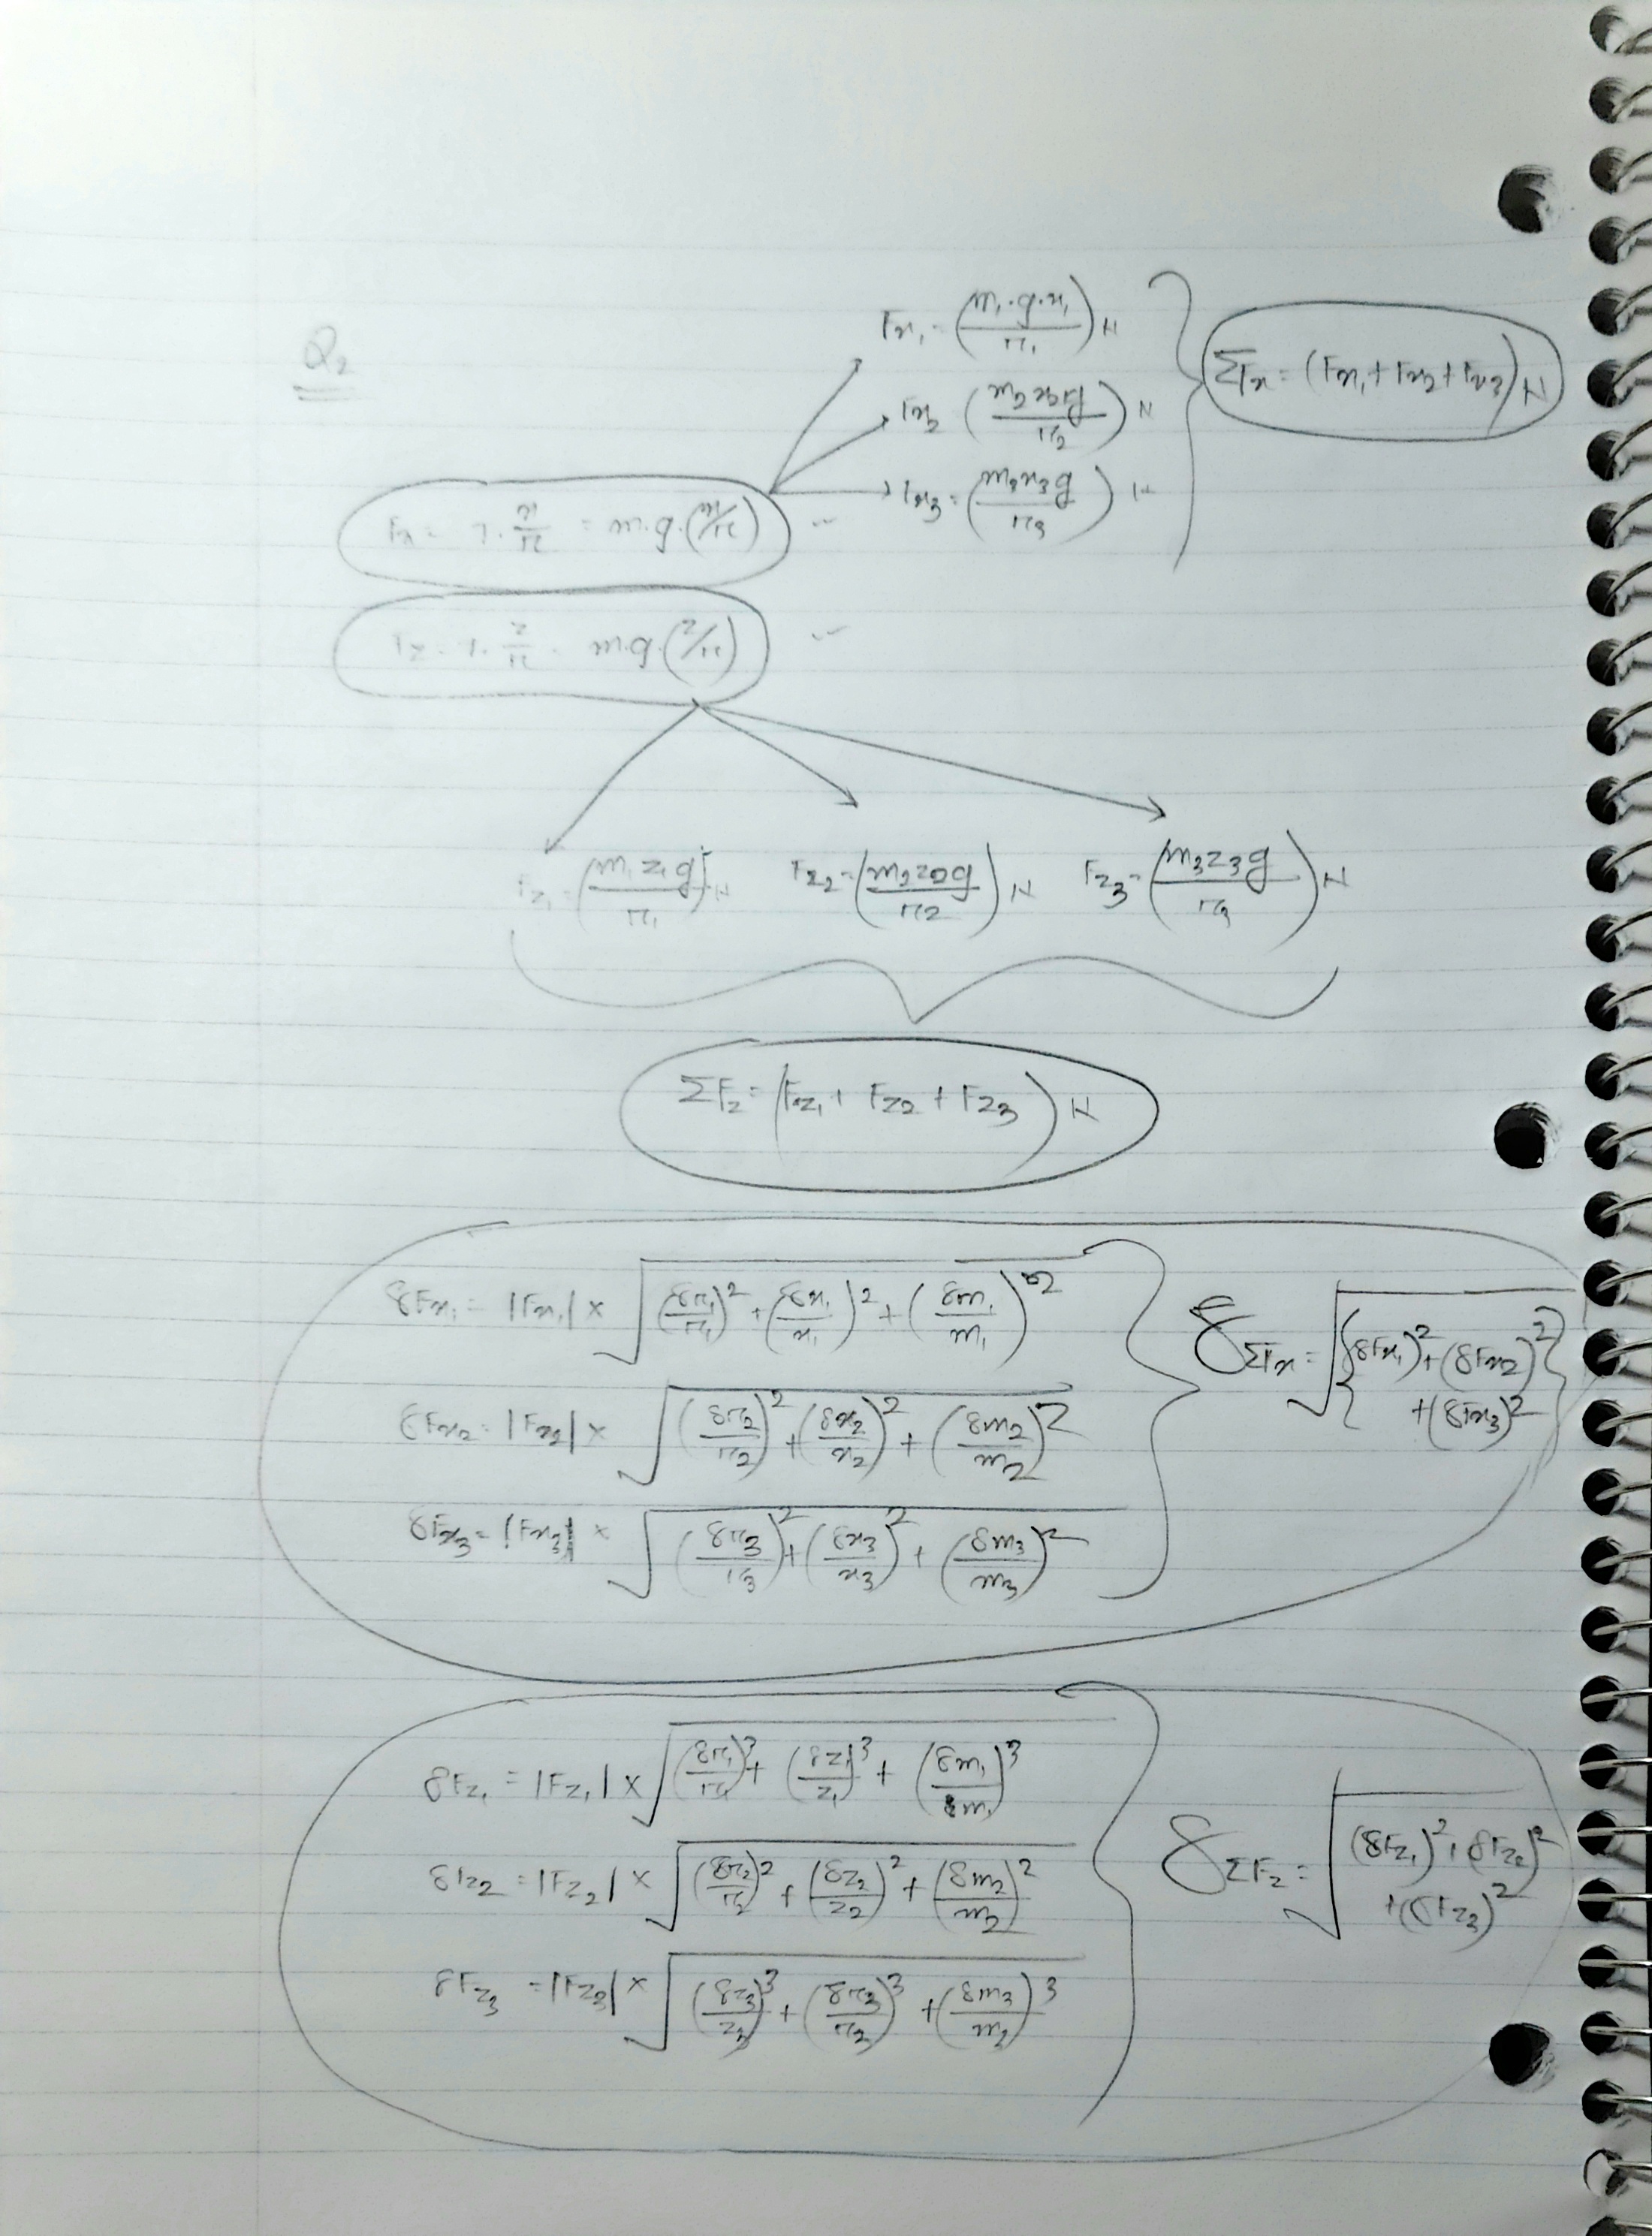 Q2
Fx₁ = (m₁·g·x₁/r₁) N
Fx₂ = (m₂x₂g/r₂) N
Fx₃ = (m₃x₃g/r₃) N
ΣFx = (Fx₁ + Fx₂ + Fx₃) N
Fx = T·x/r = m·g·(x/r)
Fz = T·z/r = m·g·(z/r)
Fz₁ = (m₁z₁g/r₁) N
Fz₂ = (m₂z₂g/r₂) N
Fz₃ = (m₃z₃g/r₃) N
ΣFz = (Fz₁ + Fz₂ + Fz₃) N
δFx₁ = |Fx₁| × √((δr₁/r₁)² + (δx₁/x₁)² + (δm₁/m₁)²)
δFx₂ = |Fx₂| × √((δr₂/r₂)² + (δx₂/x₂)² + (δm₂/m₂)²)
δFx₃ = |Fx₃| × √((δr₃/r₃)² + (δx₃/x₃)² + (δm₃/m₃)²)
δΣFx = √{(δFx₁)² + (δFx₂)²
+ (δFx₃)²}
δFz₁ = |Fz₁| × √((δr₁/r₁)³ + (δz₁/z₁)³ + (δm₁/m₁)³)
δFz₂ = |Fz₂| × √((δr₂/r₂)² + (δz₂/z₂)² + (δm₂/m₂)²)
δFz₃ = |Fz₃| × √((δz₃/z₃)³ + (δr₃/r₃)³ + (δm₃/m₃)³)
δΣFz = √((δFz₁)² + (δFz₂)²
+ (δFz₃)²)